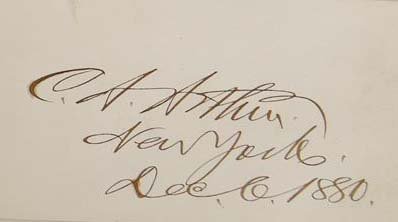 C. A. Arthur.
New York.
Dec. 6. 1880.